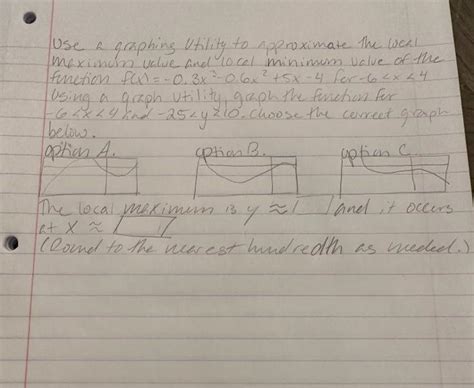 Use a graphing utility to approximate the local
maximum value and local minimum value of the
function f(x)=-0.3x³-0.6x²+5x-4 for -6<x<4
Using a graph utility, graph the function for
-6<x<4 and -25<y<10. Choose the correct graph
below.
option A. option B. option C.
The local maximum is y ≈ and it occurs
at x ≈
(Round to the nearest hundredth as needed.)